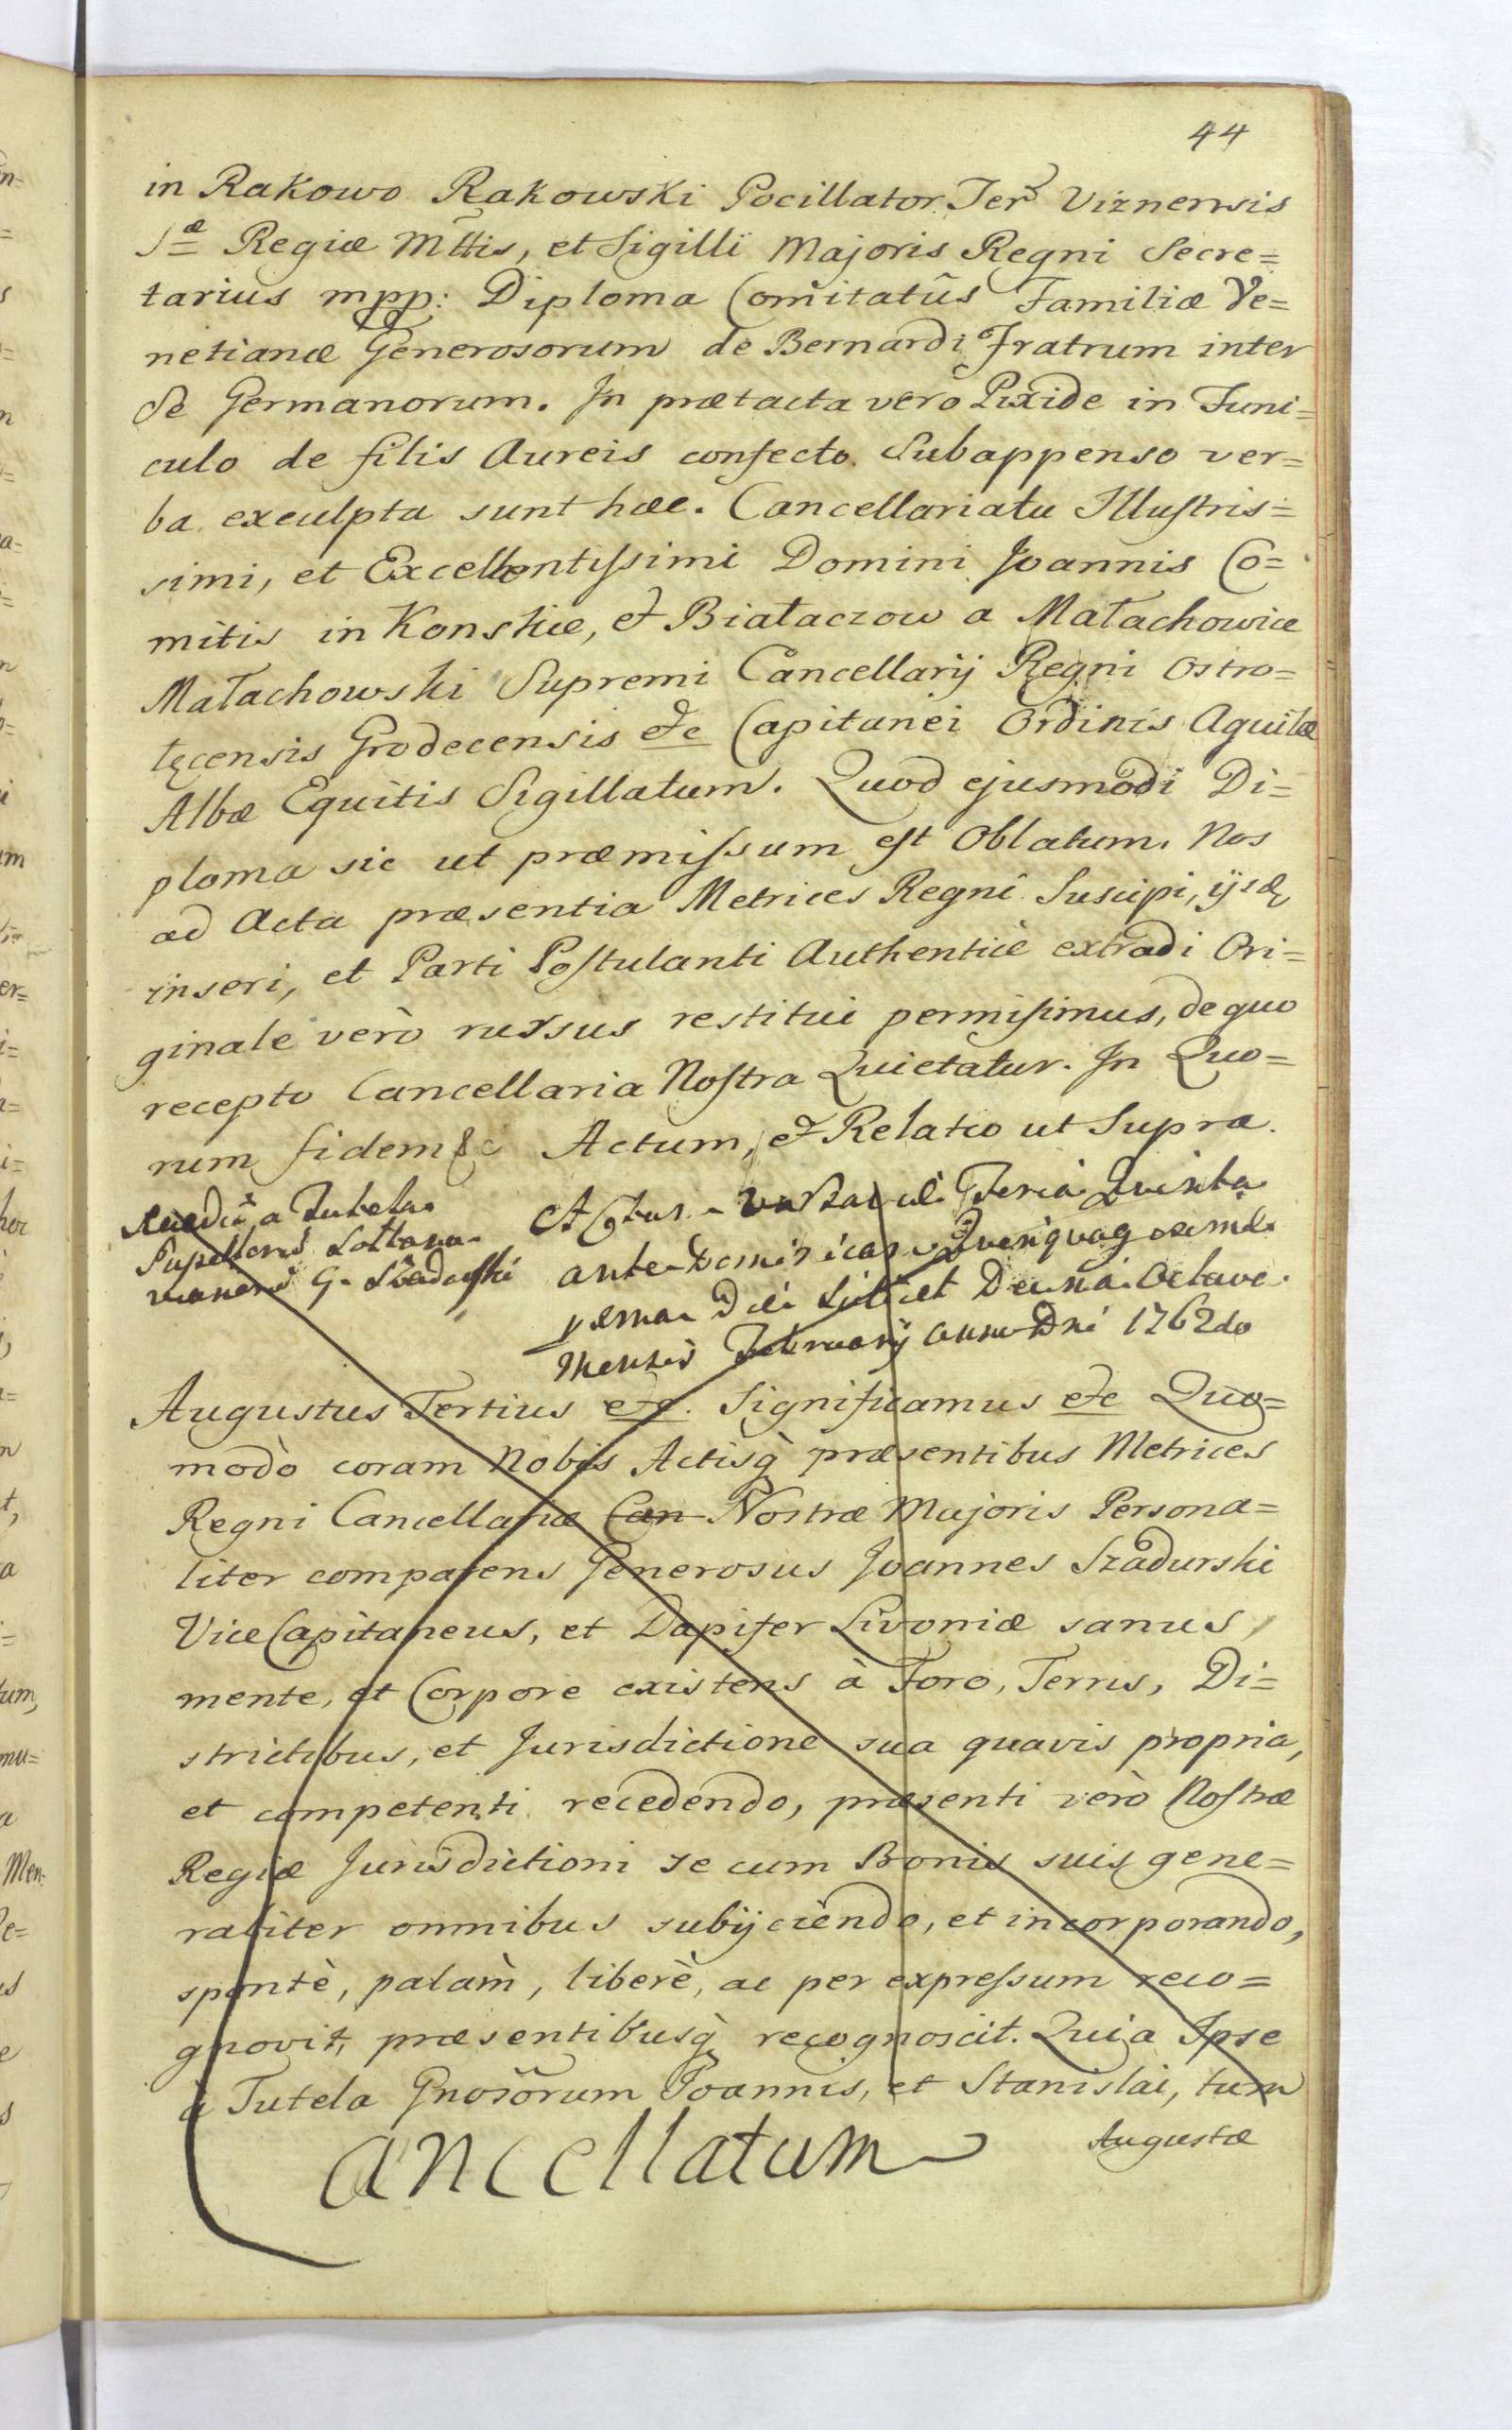 44
in Rakowo Rakowski Pocillator Ter̃ Viznensis
Sæ Regiæ Mttis, et Sigilli Majoris Regni Secre=
tarius mpp: Diploma Com̃itatûs Familiæ Ve=
netianæ Generosorum de Bernardi Fratrum inter
Se Germanorum. In prætacta vero Pixide in Funi=
culo de filis Aureis confecto Subappenso ver=
ba exculpta sunt hæc. Cancellariatu Illustris=
simi, et Excellentissimi Domini Joannis Co=
mitis in Konskie, et Białaczow a Małachowice
Małachowski Supremi Cancellarij Regni Ostro=
łęcensis Grodecensis etc Capitanei Ordinis Aquilæ
Albæ Equitis Sigillatum. Quod ejusmodi Di=
ploma sic ut præmissum est Oblatum. Nos
ad Acta præsentia Metrices Regni Suscipi, ijsdq
inseri, et Parti Postulanti Authenticè extradi Ori=
ginale verò rursus restitui permisimus, de quo
recepto Cancellaria Nostra Quietatur. In Quo=
rum fidem &c Actum, et Relatio ut Supra.
a Tutela
G.
Feria Quinta
ante Dominicam Quinquagesimæ
Die Decima Octava
Mensis Februarij Anno Dni 1762do
Augustus Tertius etc. Significamus etc Quo=
modò coram Nobis Actisq̀ præsentibus Metrices
Regni Cancellariæ Can Nostræ Majoris Persona=
liter comparens Generosus Joannes Szadurski
ViceCapitaneus, et Dapifer Livoniæ sanus
mente, et Corpore existens à Foro, Terris, Di=
strictibus, et Jurisdictione sua quavis propria,
et competenti recedendo, præsenti verò Nostræ
Regiæ Jurisdictioni se cum Bonis suis gene=
raliter omnibus subijciendo, et incorporando,
spontè, palam̀, liberè, ac per expressum reco=
gnovit, præsentibusq̀ recognoscit. Quia Ipse
à Tutela Gnosõrum Joannis, et Stanislai, tum
Augustæ
Cancellatum